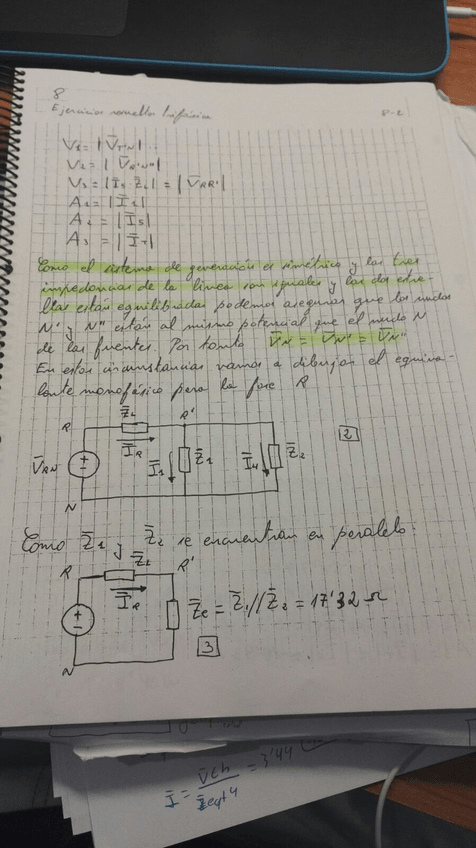 8
Ejercicios resueltos trifásica
P-2
V1 = |V̄T'N|
V2 = |V̄R'N''|
V3 = |Ī5 · Z̄L| = |V̄RR'|
A1 = |Ī1|
A2 = |Ī5|
A3 = |Ī7|
Como el sistema de generación es simétrico y las tres
impedancias de la línea son iguales y las dos estre-
llas están equilibradas podemos asegurar que los nudos
N' y N'' están al mismo potencial que el nudo N
de las fuentes. Por tanto V̄N = V̄N' = V̄N''
En estas circunstancias vamos a dibujar el equiva-
lente monofásico para la fase R
R Z̄L R'
ĪR
V̄RN
Ī1 Z̄1 Ī4 Z̄2
2
N
Como Z̄1 y Z̄2 se encuentran en paralelo:
R Z̄L R'
ĪR
Z̄e = Z̄1//Z̄2 = 17'32 Ω
3
N
Ī = V̄th / Z̄eq+4 = 3'44